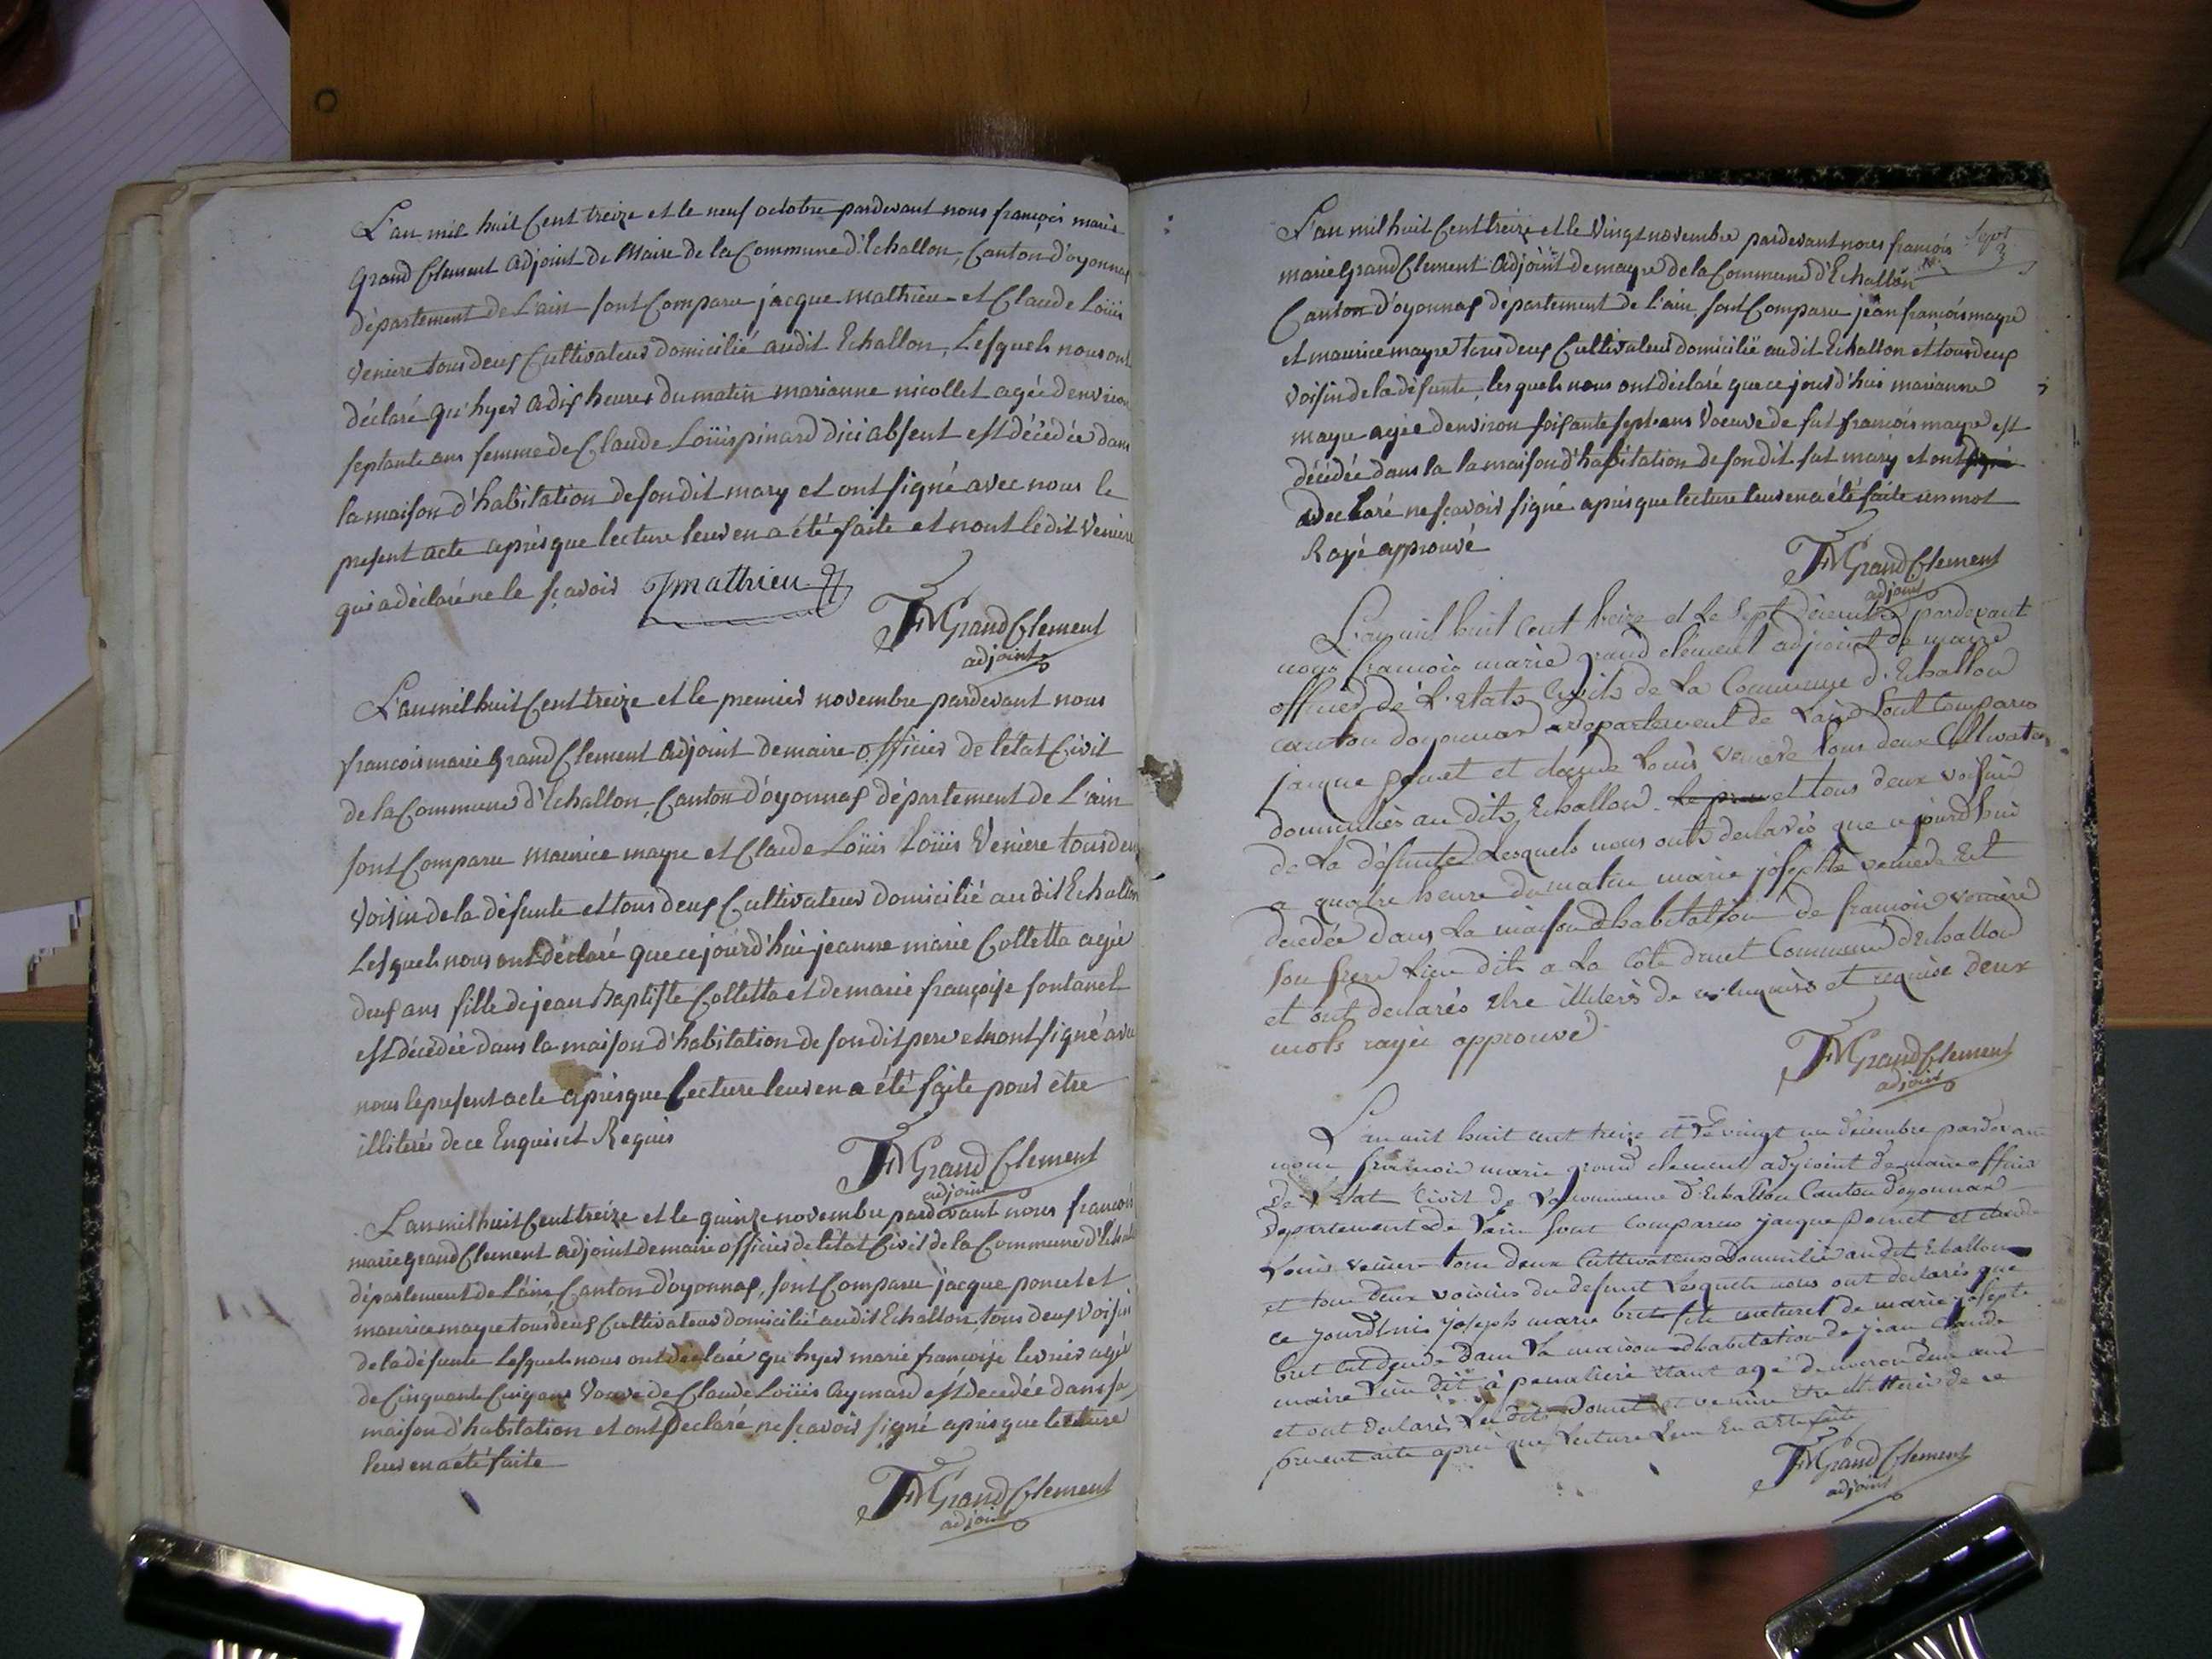 L'an mil huit Cent treize et le neuf octobre pardevant nous françois marie
grand Clement Adjoint de Maire de la Commune d'Echallon, Canton d'oyonnax
département de L'ain sont Comparu jacque mathieu et Claude Loüis
Veniere tous deux Cultivateur domicilié audit Echallon, Lesquels nous ont
déclaré qu'hyer a dix heures du matin marianne nicollet agée d'environ
septante ans femme de Claude Loüis pinard dici absent est décédée dans
la maison d'habitation de son dit mary et ont signé avec nous le
present acte après que lecture leur en a été faite et nont ledit Veniere
qui a déclaré ne le sçavoir Jmathieu
FMGrandClement
adjoint
L'an mil huit Cent treize et le premier novembre pardevant nous
francois marie grand Clement Adjoint de maire officier de l'état Civil
de la Commune d'Echallon, Canton d'oyonnax département de L'ain
sont Comparu maurice mayre et Claude Loüis Loüis Veniere tous deux
Voisin de la défunte et tous deux Cultivateur domicilié au dit Echallon
Lesquels nous ont déclaré que cejourd'hui jeanne marie Colletta agée
deux ans fille de jean Baptiste Colletta et de marie françoise fontanel
est décédée dans la maison d'habitation de son dit pere et nont signé avec
nous le present acte après que lecture leur en a été faite pour être
illiterés de ce Enquis et Requis
FMGrandClement
adjoint
L'an mil huit Cent treize et le quinze novembre pardevant nous francois
marie grand Clement adjoint de maire officier de l'état Civil de la Commune d'Echallon
département de L'ain Canton d'oyonnax, sont Comparu jacque poncet et
maurice mayre tous deux Cultivateur domicilié audit Echallon, tous deux Voisin
de la défunte Lesquels nous ont déclaré qu'hyer marie françoise levrier agée
de Cinquante Cinq ans Veuve de Claude Loüis Aymard est decedée dans sa
maison d'habitation et ont Declaré ne sçavoir signé après que lecture
leur en a été faite
FMGrandClement
adjoint
L'an mil huit Cent treize et le Vingt novembre pardevant nous françois
sept
marie grand Clement Adjoint de mayre de la Commune d'Echallon
Canton d'oyonnax département de l'ain, sont Comparu jean francois mayre
et maurice mayre tous deux Cultivateur domicilié audit Echallon et tous deux
Voisin de la défunte, lesquels nous ont déclaré que ce jourd'hui marianne
mayre agée denviron soisante sept ans Veuve de fut françois mayre est
décédée dans la la maison d'habitation de son dit fut mary et ont signé
declaré ne sçavoir signé après que lecture leur en a été faite un mot
Rayé approuvé
FMGrandClement
adjoint
L'an mil huit cent treize et Le Sept décembre pardevant
nous francois marie grand clement adjoint de mayre
officier de L'Etats Civils de La Commune d'Echallon
canton doyonnax departement de Lain Sont Comparus
jacque poncet et claude Louis veniere tous deux Cultivateur
domiciliés au dits Echallon Le et tous deux voisins
de La défunte Lesquels nous onts declarés que ce jourd'hui
a quatre heure du matin marie josephte veniere Est
decedée dans La maison d'habitation de francois veniere
Son frere Lieu dit a La Côte Commune d'Echallon
et ont declarés Etre illiterés de ce et requise deux
mots rayés approuvé
FMGrandClement
adjoint
L'an mil huit cent treize et Le vingt un décembre pardevant
nous francois marie grand clement adjoint de maire officier
de L'Etat Civil de La commune d'Echallon Canton doyonnax
Departement de Lain Sont comparus jacque poncet et claude
Louis veniere tous deux Cultivateurs domicilié audit Echallon
et tous deux voisins du defunt Lesquels nous ont declarés que
ce jourd'hui joseph marie bret fils naturel de marie josepte
bret Est decede dans La maison d'habitation de jean Claude
maire Lieu dit a étant agé denviron deux ans
et ont declarés Les dits Poncet et veniere Etre illiterés de ce
present acte après que Lecture Leur En a Eté faite
FMGrandClement
adjoint